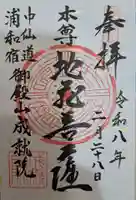 奉拝
令和八年
二月二八日
本尊
地蔵菩薩
中仙道
浦和宿
御殿山成就院